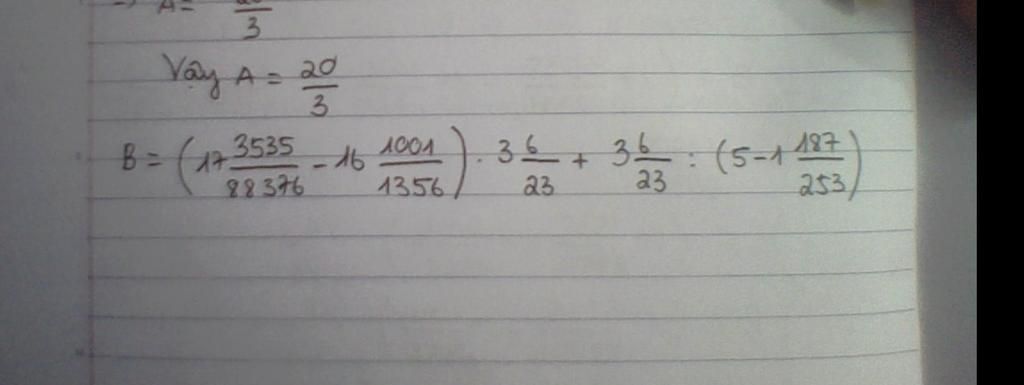 A = 20/3
Vậy A = 20/3
B = (17 3535/88376 - 16 1001/1356) . 3 6/23 + 3 6/23 : (5 - 1 187/253)